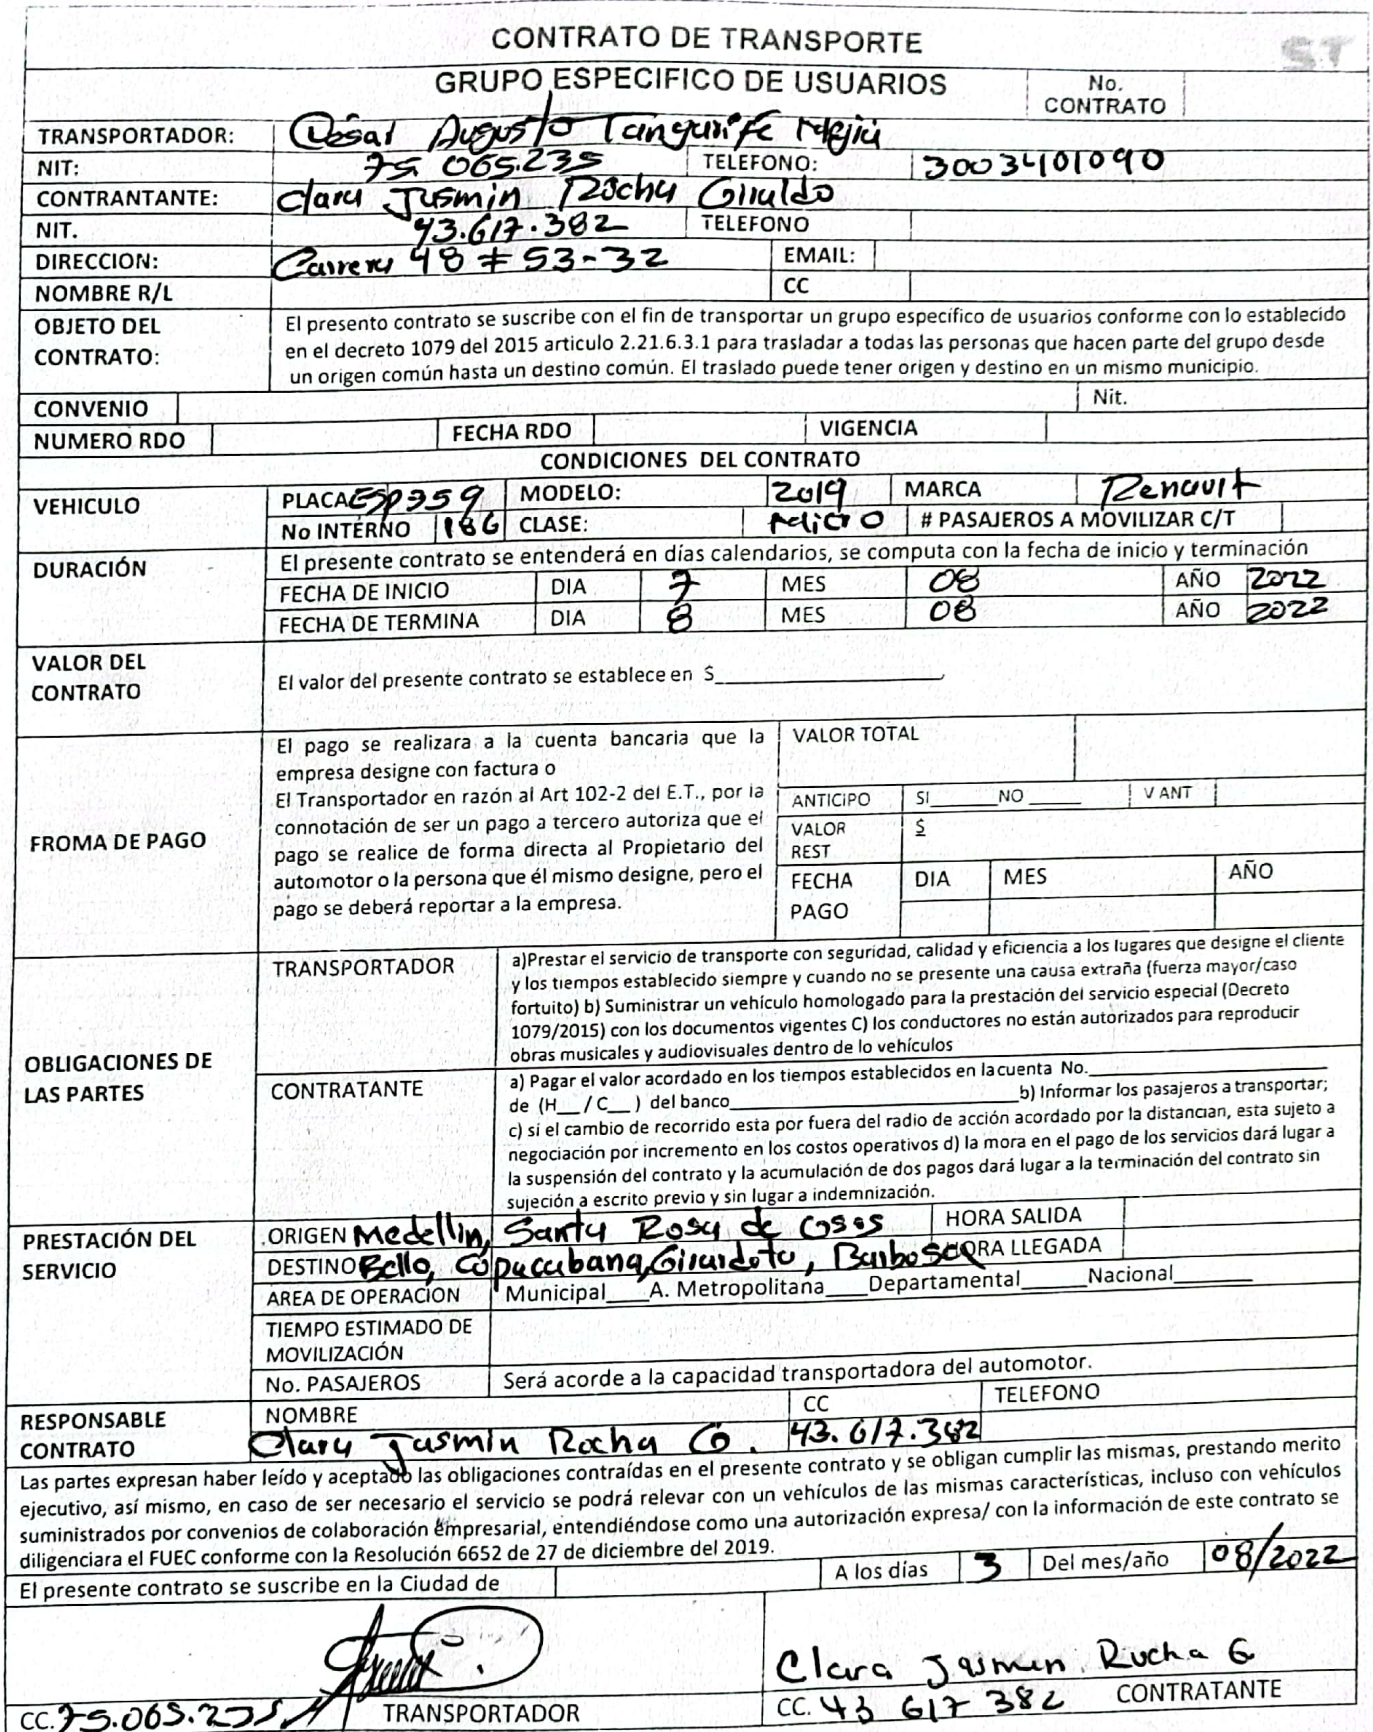 CONTRATO DE TRANSPORTE
ST
GRUPO ESPECIFICO DE USUARIOS
No. CONTRATO
TRANSPORTADOR: Cesar Augusto Tangarife Mejia
NIT: 75.065.235 TELEFONO: 3003401090
CONTRANTANTE: Clara Jasmin Rocha Giraldo
NIT. 43.617.382 TELEFONO
DIRECCION: Carrera 48 # 53-32 EMAIL:
NOMBRE R/L CC
OBJETO DEL CONTRATO:
El presento contrato se suscribe con el fin de transportar un grupo específico de usuarios conforme con lo establecido
en el decreto 1079 del 2015 articulo 2.21.6.3.1 para trasladar a todas las personas que hacen parte del grupo desde
un origen común hasta un destino común. El traslado puede tener origen y destino en un mismo municipio.
CONVENIO Nit.
NUMERO RDO FECHA RDO VIGENCIA
CONDICIONES DEL CONTRATO
VEHICULO PLACA MODELO: 2019 MARCA Renault
No INTERNO 186 CLASE: Micro # PASAJEROS A MOVILIZAR C/T
DURACIÓN El presente contrato se entenderá en días calendarios, se computa con la fecha de inicio y terminación
FECHA DE INICIO DIA 7 MES 08 AÑO 2022
FECHA DE TERMINA DIA 8 MES 08 AÑO 2022
VALOR DEL CONTRATO
El valor del presente contrato se establece en $____________________
FROMA DE PAGO
El pago se realizara a la cuenta bancaria que la
empresa designe con factura o
El Transportador en razón al Art 102-2 del E.T., por la
connotación de ser un pago a tercero autoriza que el
pago se realice de forma directa al Propietario del
automotor o la persona que él mismo designe, pero el
pago se deberá reportar a la empresa.
VALOR TOTAL
ANTICIPO SI______NO______ V ANT
VALOR REST $
FECHA PAGO DIA MES AÑO
OBLIGACIONES DE LAS PARTES
TRANSPORTADOR
a)Prestar el servicio de transporte con seguridad, calidad y eficiencia a los lugares que designe el cliente
y los tiempos establecido siempre y cuando no se presente una causa extraña (fuerza mayor/caso
fortuito) b) Suministrar un vehículo homologado para la prestación del servicio especial (Decreto
1079/2015) con los documentos vigentes C) los conductores no están autorizados para reproducir
obras musicales y audiovisuales dentro de lo vehículos
CONTRATANTE
a) Pagar el valor acordado en los tiempos establecidos en la cuenta No.____________________
de (H__ / C__ ) del banco____________________b) Informar los pasajeros a transportar;
c) si el cambio de recorrido esta por fuera del radio de acción acordado por la distancian, esta sujeto a
negociación por incremento en los costos operativos d) la mora en el pago de los servicios dará lugar a
la suspensión del contrato y la acumulación de dos pagos dará lugar a la terminación del contrato sin
sujeción a escrito previo y sin lugar a indemnización.
PRESTACIÓN DEL SERVICIO
ORIGEN Medellin, Santa Rosa de Osos HORA SALIDA
DESTINO Bello, Copacabana, Girardota, Barbosa HORA LLEGADA
AREA DE OPERACION Municipal____A. Metropolitana____Departamental______Nacional________
TIEMPO ESTIMADO DE MOVILIZACIÓN
No. PASAJEROS Será acorde a la capacidad transportadora del automotor.
RESPONSABLE CONTRATO
NOMBRE CC TELEFONO
Clara Jasmin Rocha G. 43.617.382
Las partes expresan haber leído y aceptado las obligaciones contraídas en el presente contrato y se obligan cumplir las mismas, prestando merito
ejecutivo, así mismo, en caso de ser necesario el servicio se podrá relevar con un vehículos de las mismas características, incluso con vehículos
suministrados por convenios de colaboración empresarial, entendiéndose como una autorización expresa/ con la información de este contrato se
diligenciara el FUEC conforme con la Resolución 6652 de 27 de diciembre del 2019.
El presente contrato se suscribe en la Ciudad de A los días 3 Del mes/año 08/2022
Clara Jasmin Rocha G
CC. 75.065.235 TRANSPORTADOR
CC. 43 617 382 CONTRATANTE